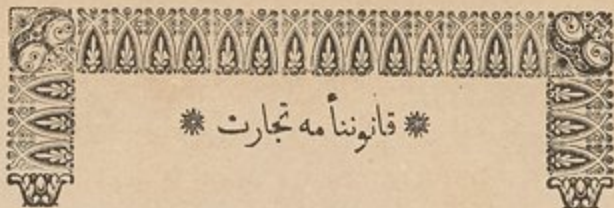 قانوننأمه تجارت